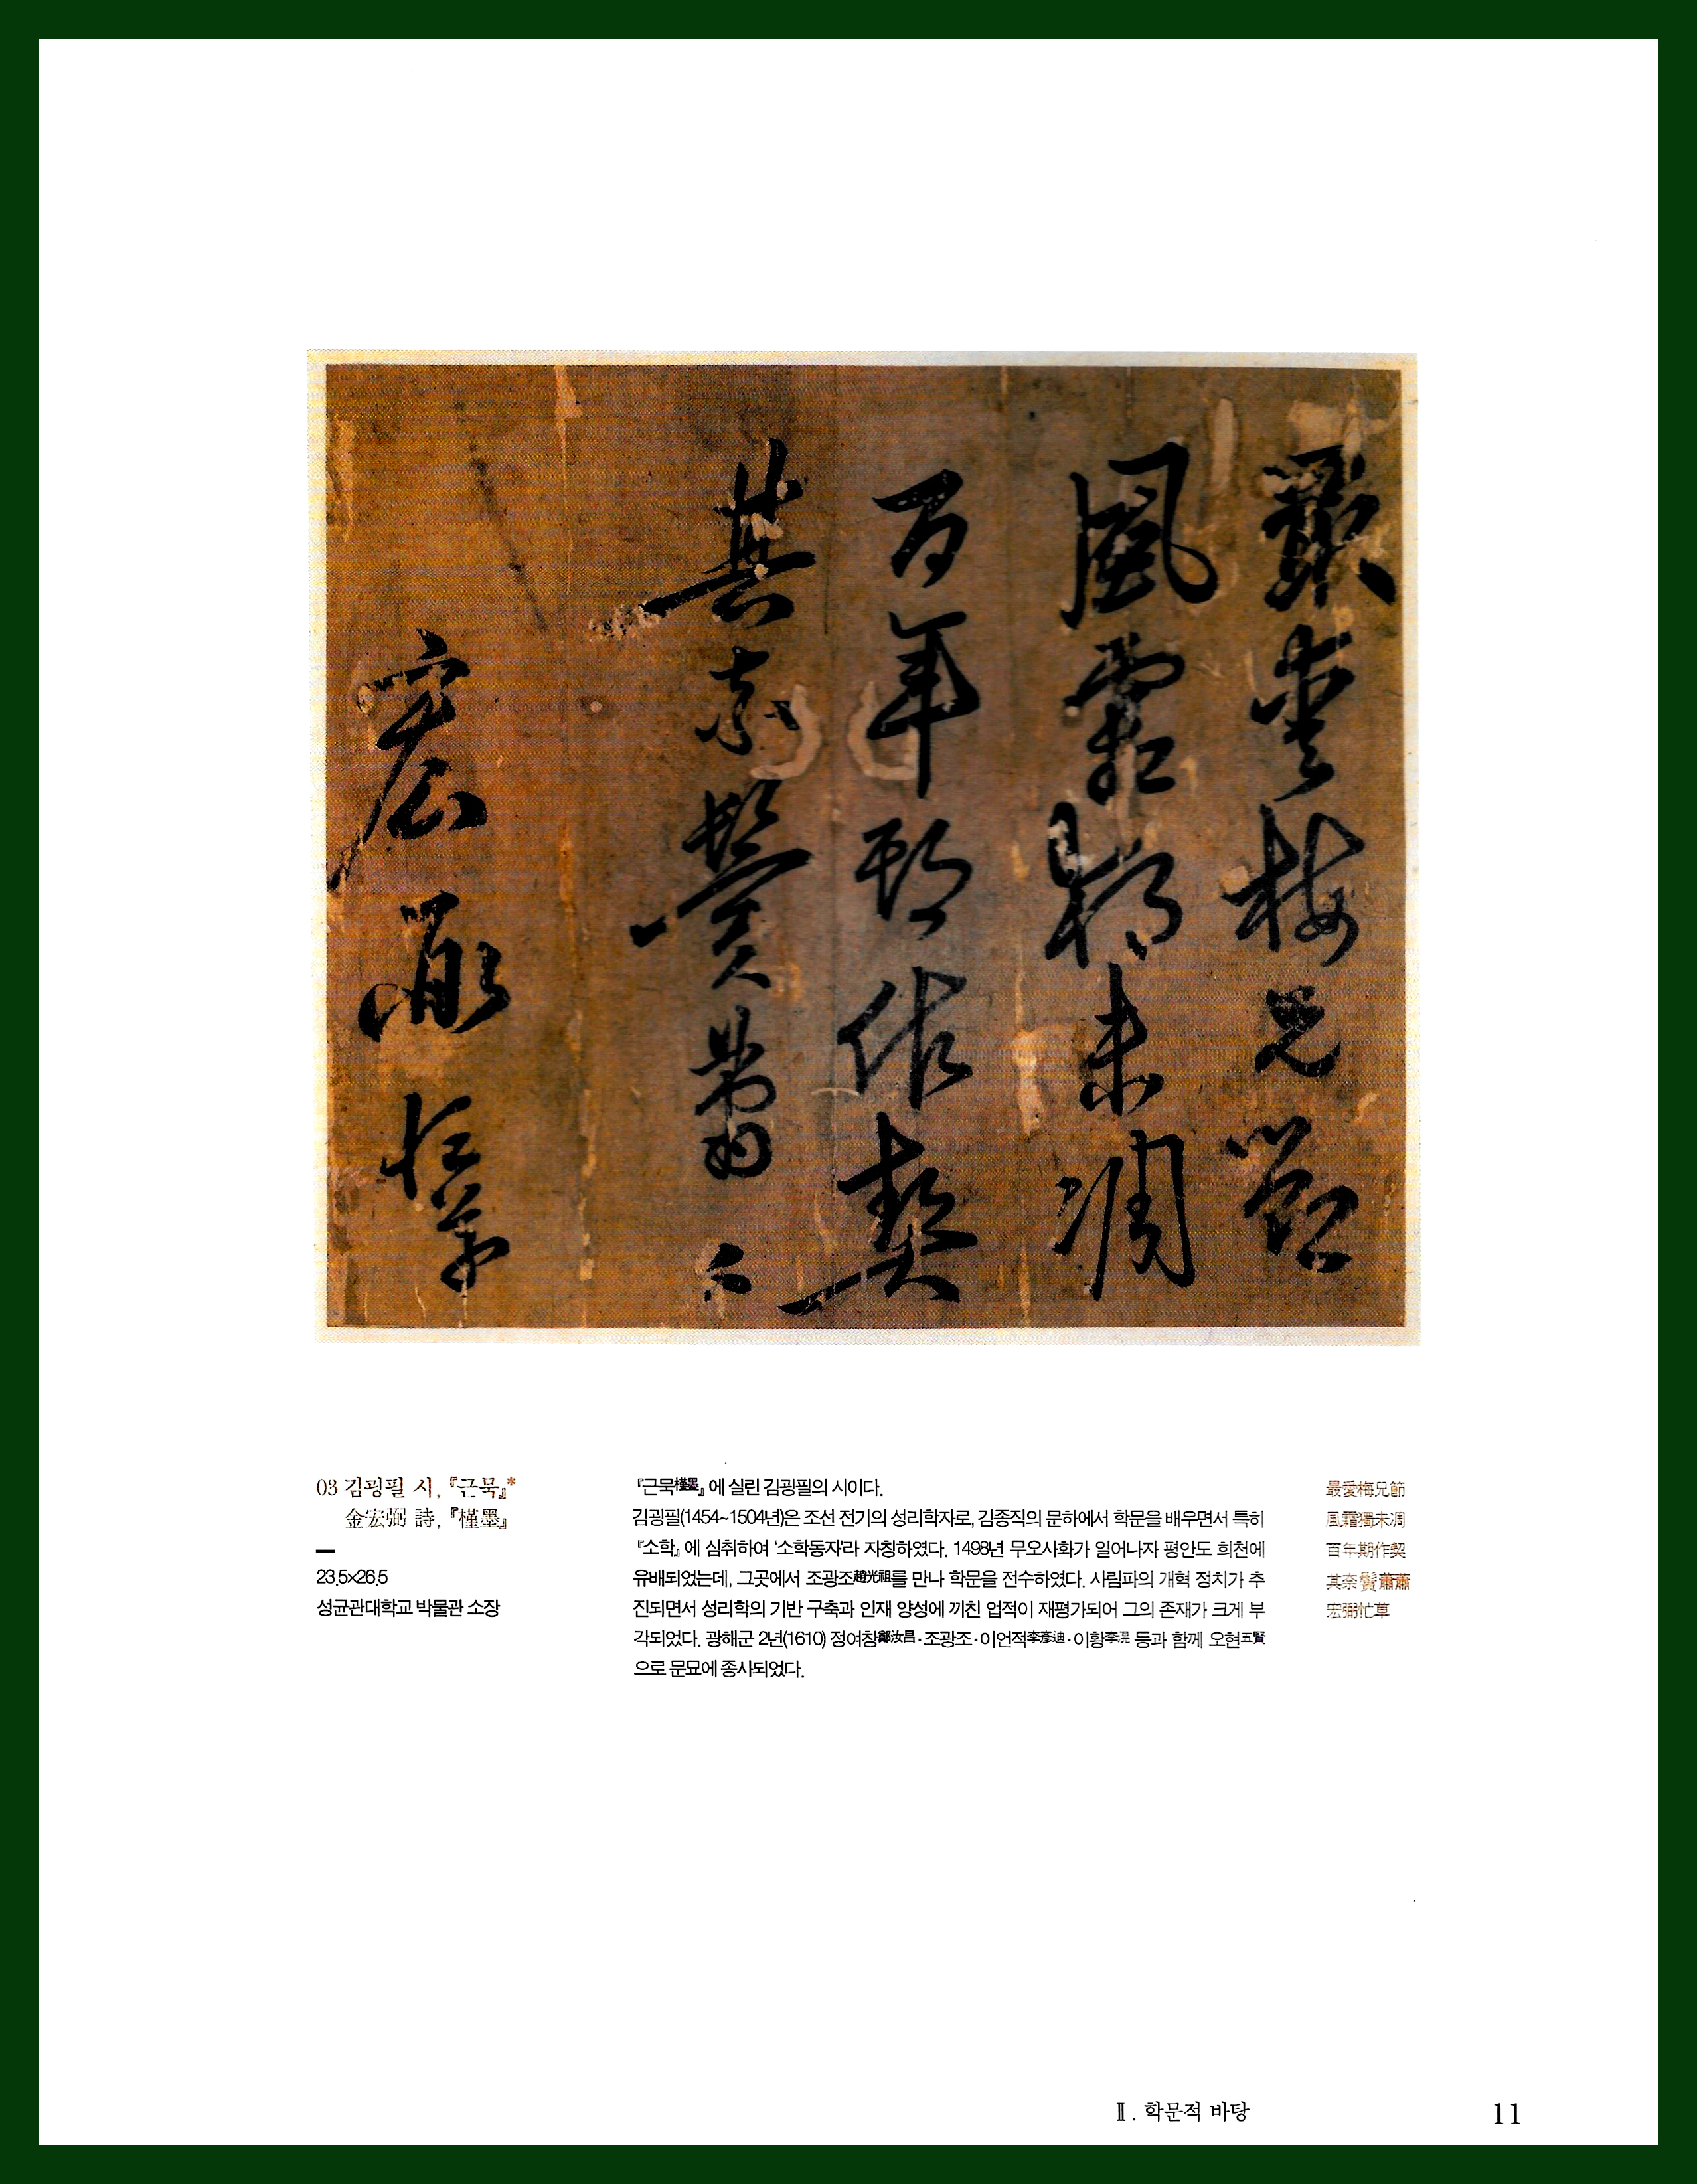 最愛梅兄節
風霜獨未凋
百年期作契
其奈鬢蕭蕭
宏弼忙草
03 김굉필 시, 『근묵』*
金宏弼 詩, 『槿墨』
23.5×26.5
성균관대학교 박물관 소장
『근묵槿墨』에 실린 김굉필의 시이다.
김굉필(1454~1504년)은 조선 전기의 성리학자로, 김종직의 문하에서 학문을 배우면서 특히
『소학』에 심취하여 '소학동자'라 자칭하였다. 1498년 무오사화가 일어나자 평안도 희천에
유배되었는데, 그곳에서 조광조趙光祖를 만나 학문을 전수하였다. 사림파의 개혁 정치가 추
진되면서 성리학의 기반 구축과 인재 양성에 끼친 업적이 재평가되어 그의 존재가 크게 부
각되었다. 광해군 2년(1610) 정여창鄭汝昌·조광조·이언적李彥迪·이황李滉 등과 함께 오현五賢
으로 문묘에 종사되었다.
最愛梅兄節
風霜獨未凋
百年期作契
其奈鬢蕭蕭
宏弼忙草
Ⅱ. 학문적 바탕
11